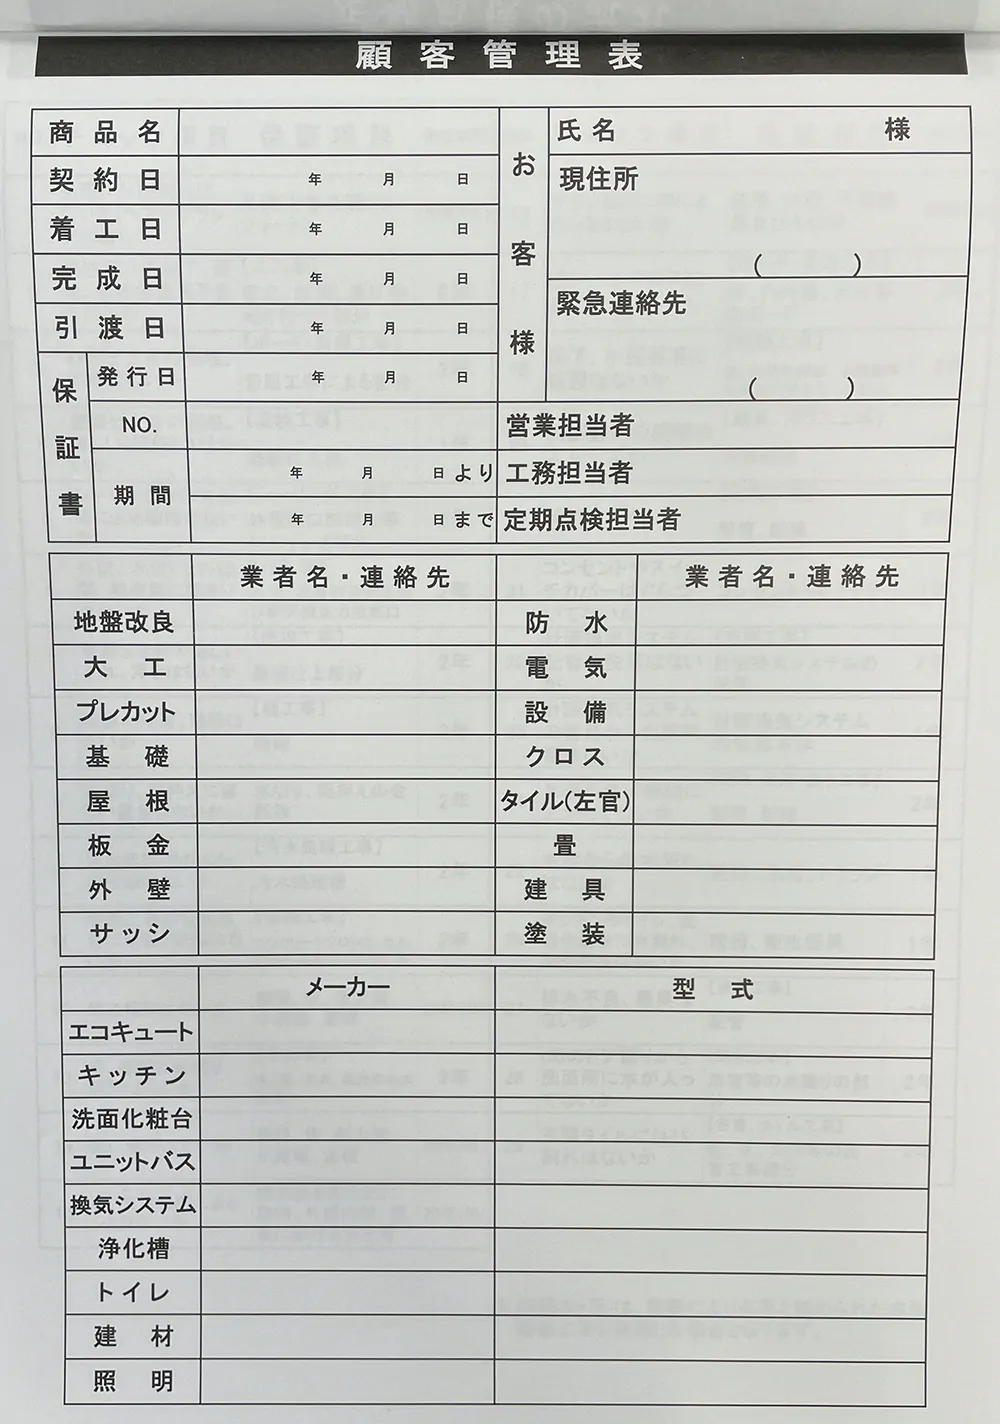 顧客管理表
商品名
お客様
氏名 様
契約日 年 月 日
現住所
着工日 年 月 日
完成日 年 月 日
( )
引渡日 年 月 日
緊急連絡先
保証書
発行日 年 月 日
( )
NO.
営業担当者
期間
年 月 日より
工務担当者
年 月 日まで
定期点検担当者
業者名・連絡先 業者名・連絡先
地盤改良 防水
大工 電気
プレカット 設備
基礎 クロス
屋根 タイル(左官)
板金 畳
外壁 建具
サッシ 塗装
メーカー 型式
エコキュート
キッチン
洗面化粧台
ユニットバス
換気システム
浄化槽
トイレ
建材
照明